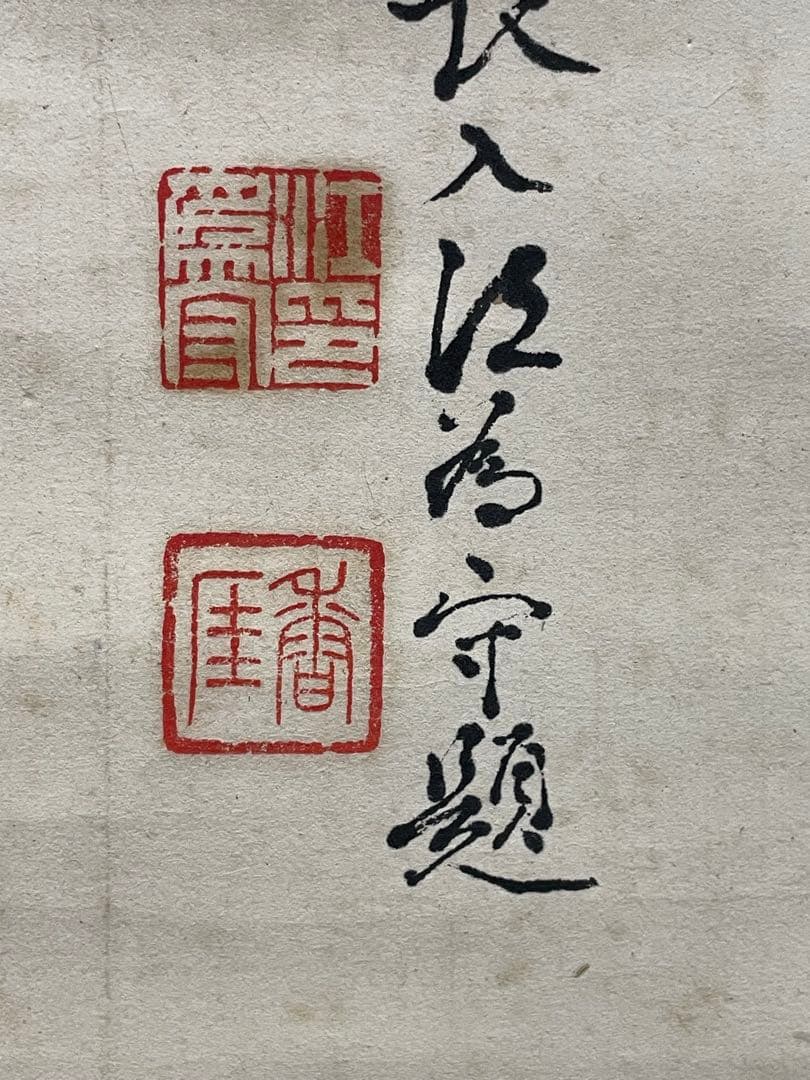 長入江為守題
江印爲守
香厓